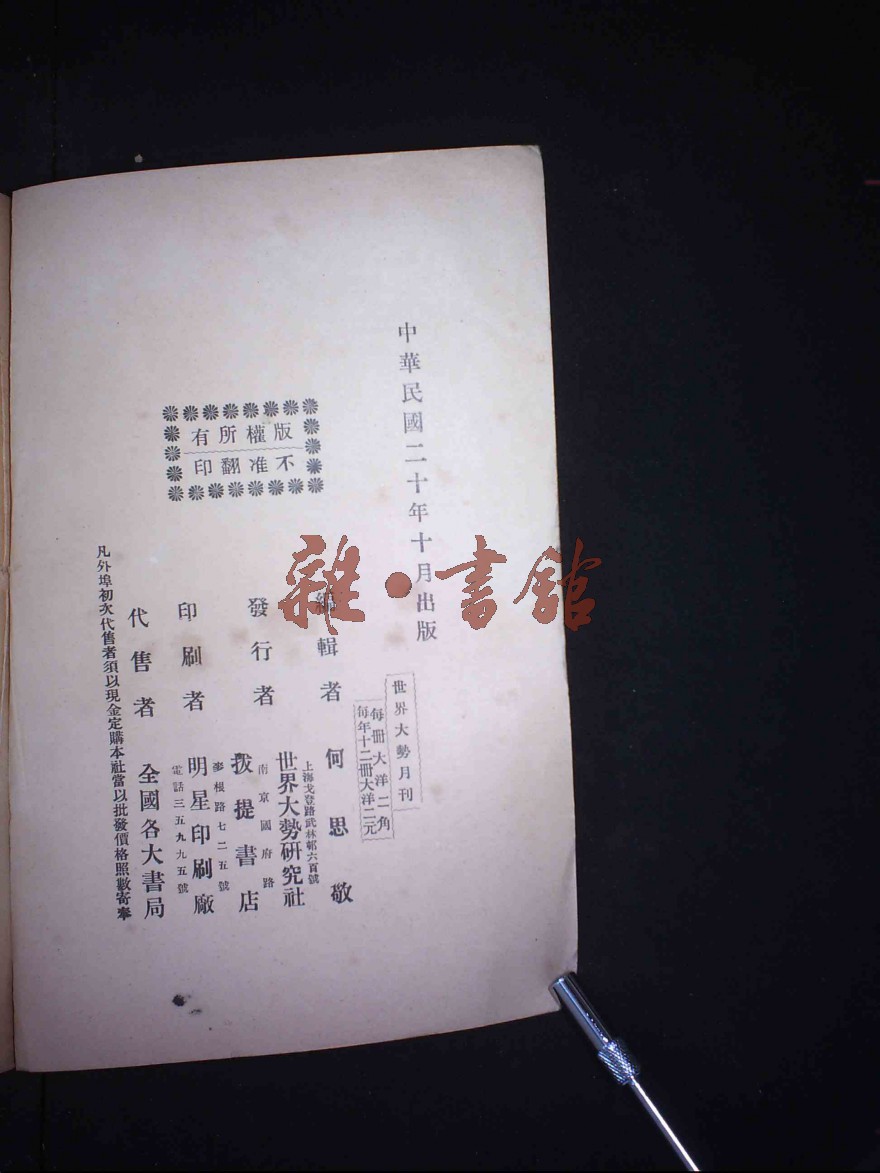 中華民國二十年十月出版
世界大勢月刊
每冊大洋二角
每年十二冊大洋二元
編輯者 何思敬
上海戈登路武林邨六百號
發行者 世界大勢研究社
南京國府路
拔提書店
麥根路七二五號
印刷者 明星印刷廠
電話三五九九五號
代售者 全國各大書局
凡外埠初次代售者須以現金定購本社當以批發價格照數寄奉
版權所有
不准翻印
雜·書館